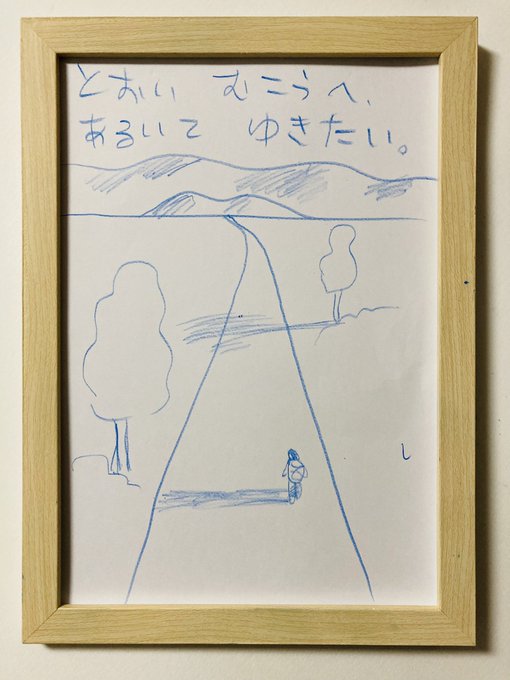 とおい むこうへ、
あるいて ゆきたい。
し